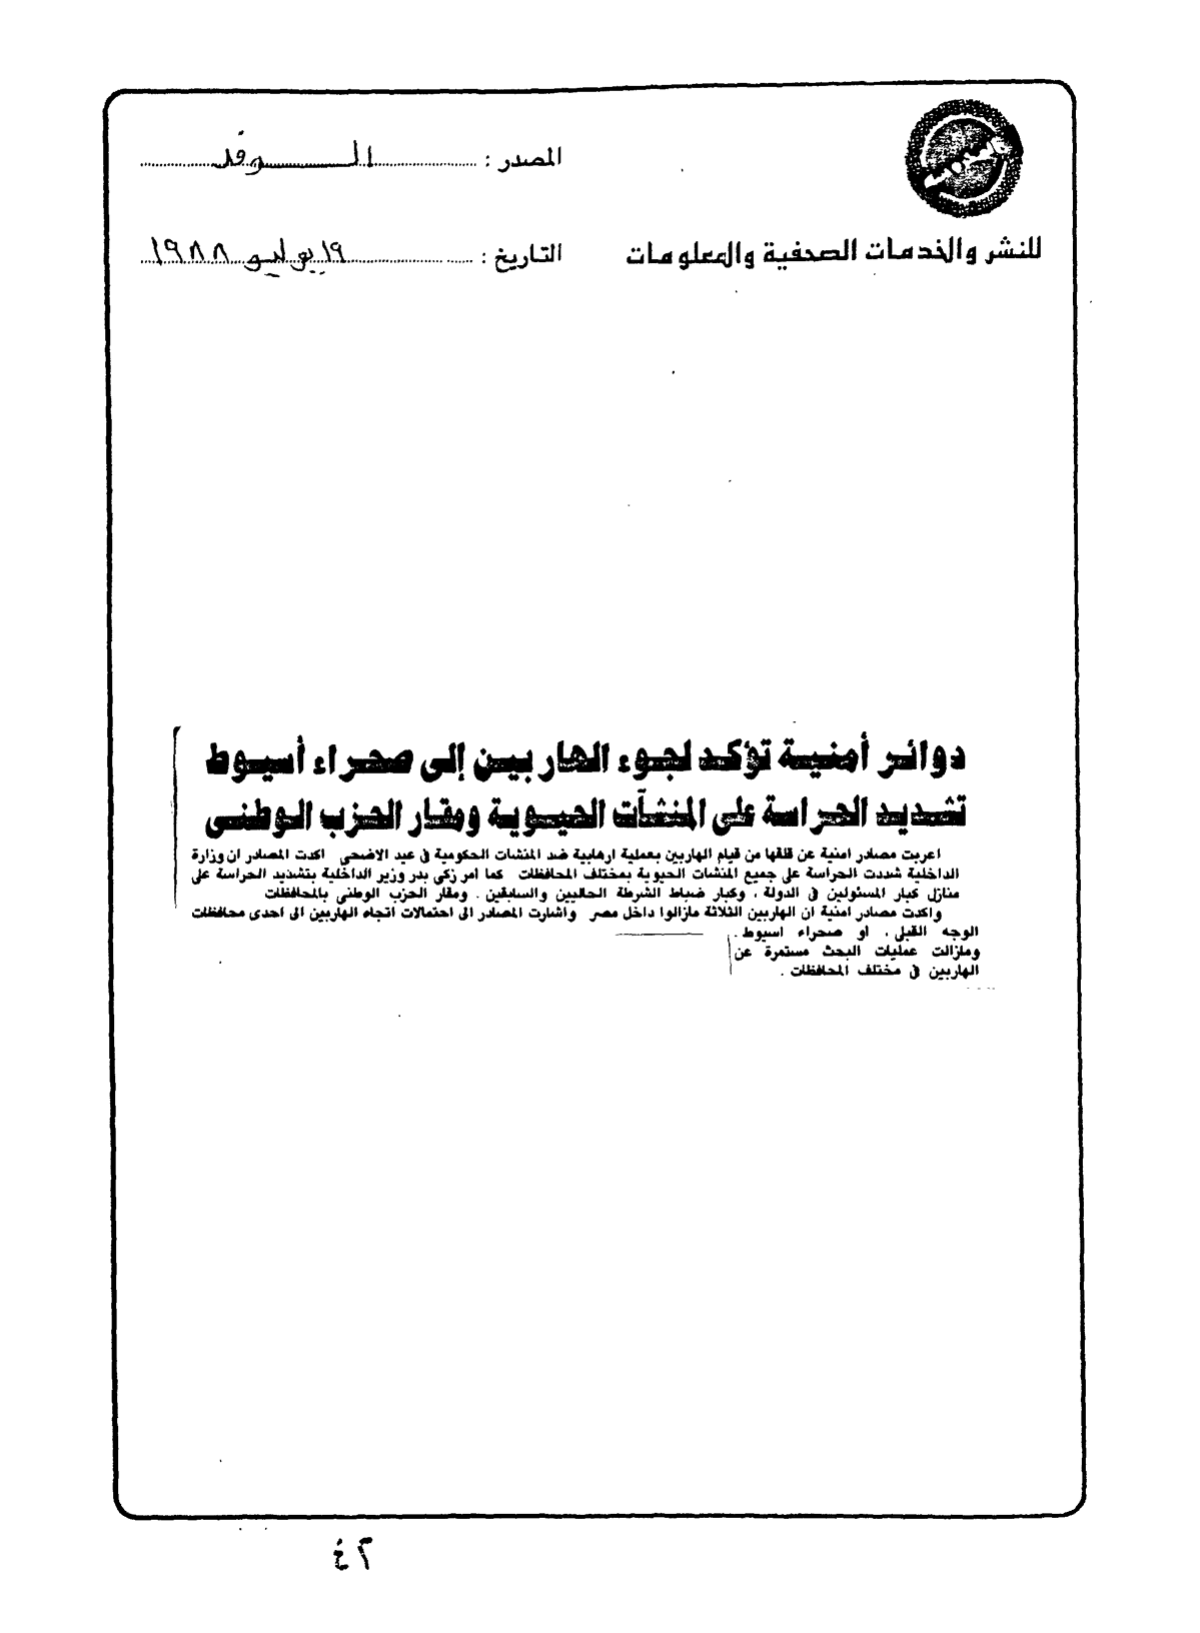 المصدر : الـــوفد
للنشر والخدمات الصحفية والمعلومات
التاريخ : ١٩ يوليو ١٩٨٨
دوائر أمنية تؤكد لجوء الهاربين إلى صحراء أسيوط
تشديد الحراسة على المنشآت الحيوية ومقار الحزب الوطنى
اعربت مصادر امنية عن قلقها من قيام الهاربين بعملية ارهابية ضد المنشات الحكومية فى عيد الاضحى اكدت المصادر ان وزارة
الداخلية شددت الحراسة على جميع المنشات الحيوية بمختلف المحافظات كما امر زكى بدر وزير الداخلية بتشديد الحراسة على
منازل كبار المسئولين فى الدولة ، وكبار ضباط الشرطة الحاليين والسابقين . ومقار الحزب الوطنى بالمحافظات
واكدت مصادر امنية ان الهاربين الثلاثة مازالوا داخل مصر واشارت المصادر الى احتمالات اتجاه الهاربين الى احدى محافظات
الوجه القبلى ، او صحراء اسيوط .
ومازالت عمليات البحث مستمرة عن
الهاربين فى مختلف المحافظات .
٢٤